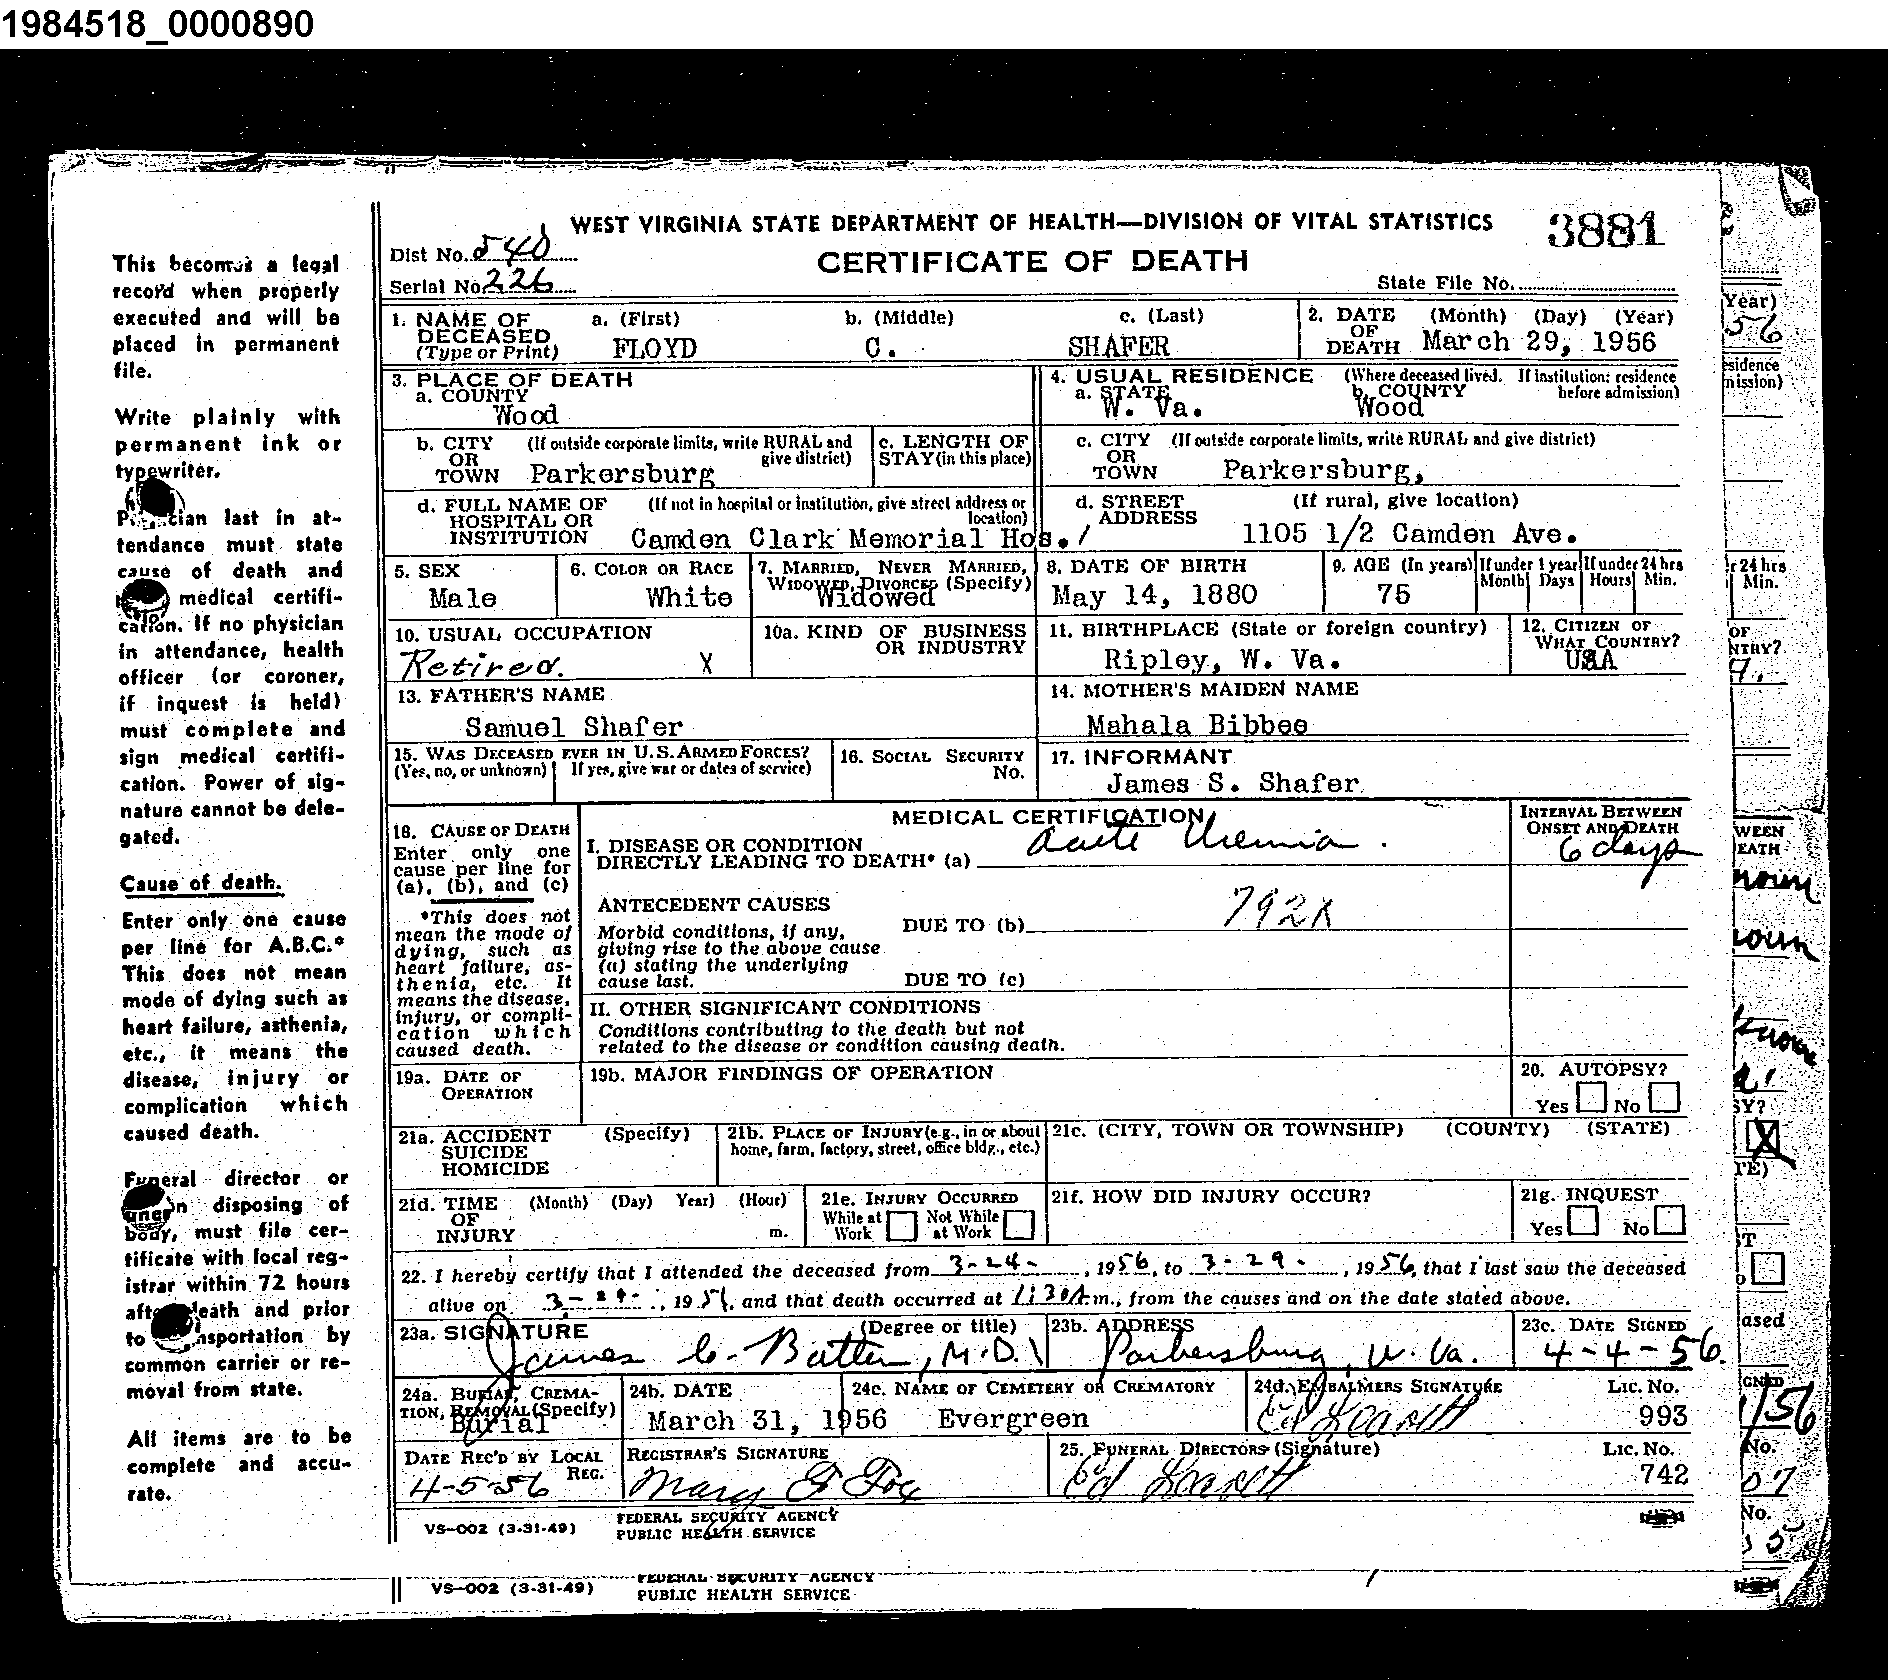 1984518_0000890
WEST VIRGINIA STATE DEPARTMENT OF HEALTH—DIVISION OF VITAL STATISTICS
3881
Dist No. 540
CERTIFICATE OF DEATH
Serial No 226
State File No.
This becomes a legal
record when properly
executed and will be
placed in permanent
file.
Write plainly with
permanent ink or
typewriter.
Physician last in at-
tendance must state
cause of death and
medical certifi-
cation. If no physician
in attendance, health
officer (or coroner,
if inquest is held)
must complete and
sign medical certifi-
cation. Power of sig-
nature cannot be dele-
gated.
Cause of death.
Enter only one cause
per line for A.B.C.*
This does not mean
mode of dying such as
heart failure, asthenia,
etc., it means the
disease, injury or
complication which
caused death.
Funeral director or
disposing of
body, must file cer-
tificate with local reg-
istrar within 72 hours
after death and prior
to transportation by
common carrier or re-
moval from state.
All items are to be
complete and accu-
rate.
1. NAME OF DECEASED (Type or Print)
a. (First) b. (Middle) c. (Last)
FLOYD C. SHAFER
2. DATE OF DEATH (Month) (Day) (Year)
March 29, 1956
3. PLACE OF DEATH
a. COUNTY
Wood
4. USUAL RESIDENCE (Where deceased lived. If institution: residence before admission)
a. STATE b. COUNTY
W. Va. Wood
b. CITY OR TOWN (If outside corporate limits, write RURAL and give district)
Parkersburg
c. LENGTH OF STAY (in this place)
c. CITY OR TOWN (If outside corporate limits, write RURAL and give district)
Parkersburg,
d. FULL NAME OF HOSPITAL OR INSTITUTION (If not in hospital or institution, give street address or location)
Camden Clark Memorial Hos.
d. STREET ADDRESS (If rural, give location)
1105 1/2 Camden Ave.
5. SEX
Male
6. COLOR OR RACE
White
7. MARRIED, NEVER MARRIED, WIDOWED, DIVORCED (Specify)
Widowed
8. DATE OF BIRTH
May 14, 1880
9. AGE (In years)
75
If under 1 year Month Days
If under 24 hrs Hours Min.
10. USUAL OCCUPATION
Retired. X
10a. KIND OF BUSINESS OR INDUSTRY
11. BIRTHPLACE (State or foreign country)
Ripley, W. Va.
12. CITIZEN OF WHAT COUNTRY?
USA
13. FATHER'S NAME
Samuel Shafer
14. MOTHER'S MAIDEN NAME
Mahala Bibbee
15. WAS DECEASED EVER IN U.S. ARMED FORCES?
(Yes, no, or unknown) If yes, give war or dates of service)
16. SOCIAL SECURITY No.
17. INFORMANT
James S. Shafer
MEDICAL CERTIFICATION
INTERVAL BETWEEN ONSET AND DEATH
18. CAUSE OF DEATH
Enter only one
cause per line for
(a), (b), and (c)
*This does not
mean the mode of
dying, such as
heart failure, as-
thenia, etc. It
means the disease,
injury, or compli-
cation which
caused death.
I. DISEASE OR CONDITION
DIRECTLY LEADING TO DEATH* (a) Acute Uremia. 6 days
ANTECEDENT CAUSES
Morbid conditions, if any,
giving rise to the above cause
(a) stating the underlying
cause last.
DUE TO (b) 792X
DUE TO (c)
II. OTHER SIGNIFICANT CONDITIONS
Conditions contributing to the death but not
related to the disease or condition causing death.
19a. DATE OF OPERATION
19b. MAJOR FINDINGS OF OPERATION
20. AUTOPSY?
Yes No
21a. ACCIDENT SUICIDE HOMICIDE (Specify)
21b. PLACE OF INJURY (e.g., in or about home, farm, factory, street, office bldg., etc.)
21c. (CITY, TOWN OR TOWNSHIP) (COUNTY) (STATE)
21d. TIME OF INJURY (Month) (Day) Year) (Hour) m.
21e. INJURY OCCURRED
While at Work Not While at Work
21f. HOW DID INJURY OCCUR?
21g. INQUEST
Yes No
22. I hereby certify that I attended the deceased from 3-24-, 1956, to 3-29-, 1956, that I last saw the deceased
alive on 3-29-, 1956, and that death occurred at 1:30A.m., from the causes and on the date stated above.
23a. SIGNATURE (Degree or title)
James C. Butler, M.D.
23b. ADDRESS
Parkersburg, W. Va.
23c. DATE SIGNED
4-4-56.
24a. BURIAL, CREMATION, REMOVAL (Specify)
Burial
24b. DATE
March 31, 1956
24c. NAME OF CEMETERY OR CREMATORY
Evergreen
24d. EMBALMERS SIGNATURE
Lic. No.
993
DATE REC'D BY LOCAL REG.
4-5-56
REGISTRAR'S SIGNATURE
Mary F Fox
25. FUNERAL DIRECTORS (Signature)
Lic. No.
742
VS—002 (3-31-49)
FEDERAL SECURITY AGENCY
PUBLIC HEALTH SERVICE
VS—002 (3-31-49)
FEDERAL SECURITY AGENCY
PUBLIC HEALTH SERVICE